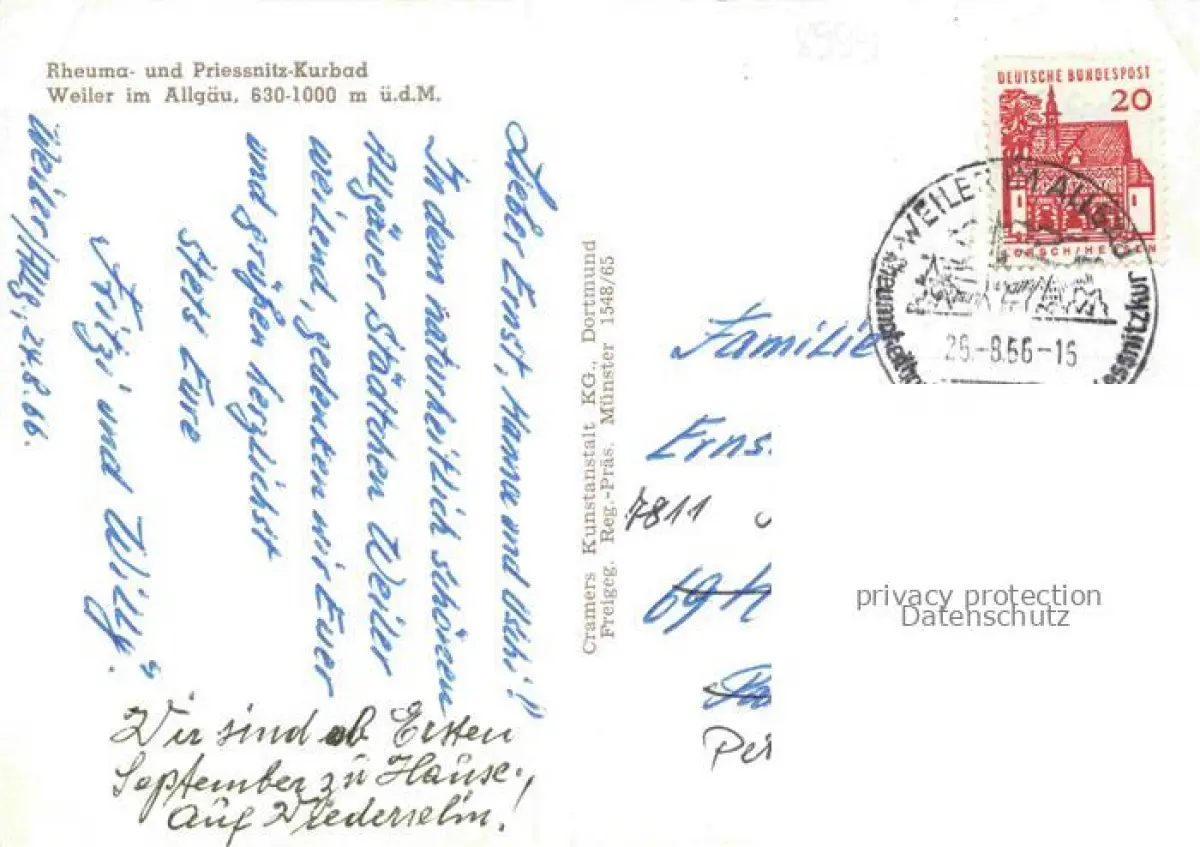 Rheuma- und Priessnitz-Kurbad
Weiler im Allgäu, 630-1000 m ü.d.M.
Weiler/Allg., 24.8.66.
Lieber Ernst, Hanna und Uschi!
In dem naturheitlich schönen
Allgäuer Städtchen Weiler
weilend, gedenken wir Eurer
und grüßen herzlichst
Stets Eure
"Fritzi und Willy."
Wir sind ab Ersten
September zu Hause,
Auf Wiedersehn!
Cramers Kunstanstalt KG., Dortmund
Freigeg. Reg.-Präs. Münster 1548/65
DEUTSCHE BUNDESPOST
20
LORSCH/HESSEN
WEILER IM ALLGÄU
26.-8.66-16
Familie
Erns
7811
69
Per
privacy protection
Datenschutz